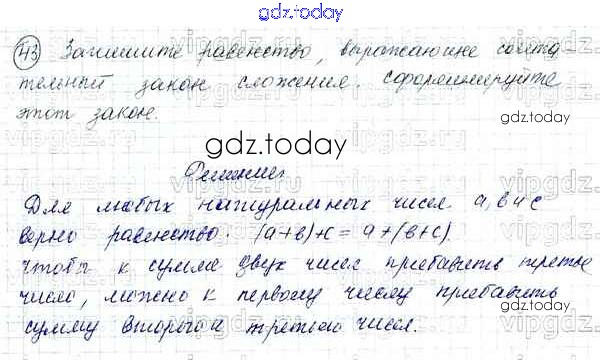 gdz.today
43 Запишите равенство, выражающие сочета
тельный закон сложения. Сформулируйте
этот закон.
gdz.today
gdz.today
Решение
Для любых натуральных чисел a, b и c
верно равенство: (a+b)+c = a+(b+c).
Чтобы к сумме двух чисел прибавить третье
число, можно к первому числу прибавить
сумму второго и третьего чисел.
gdz.today